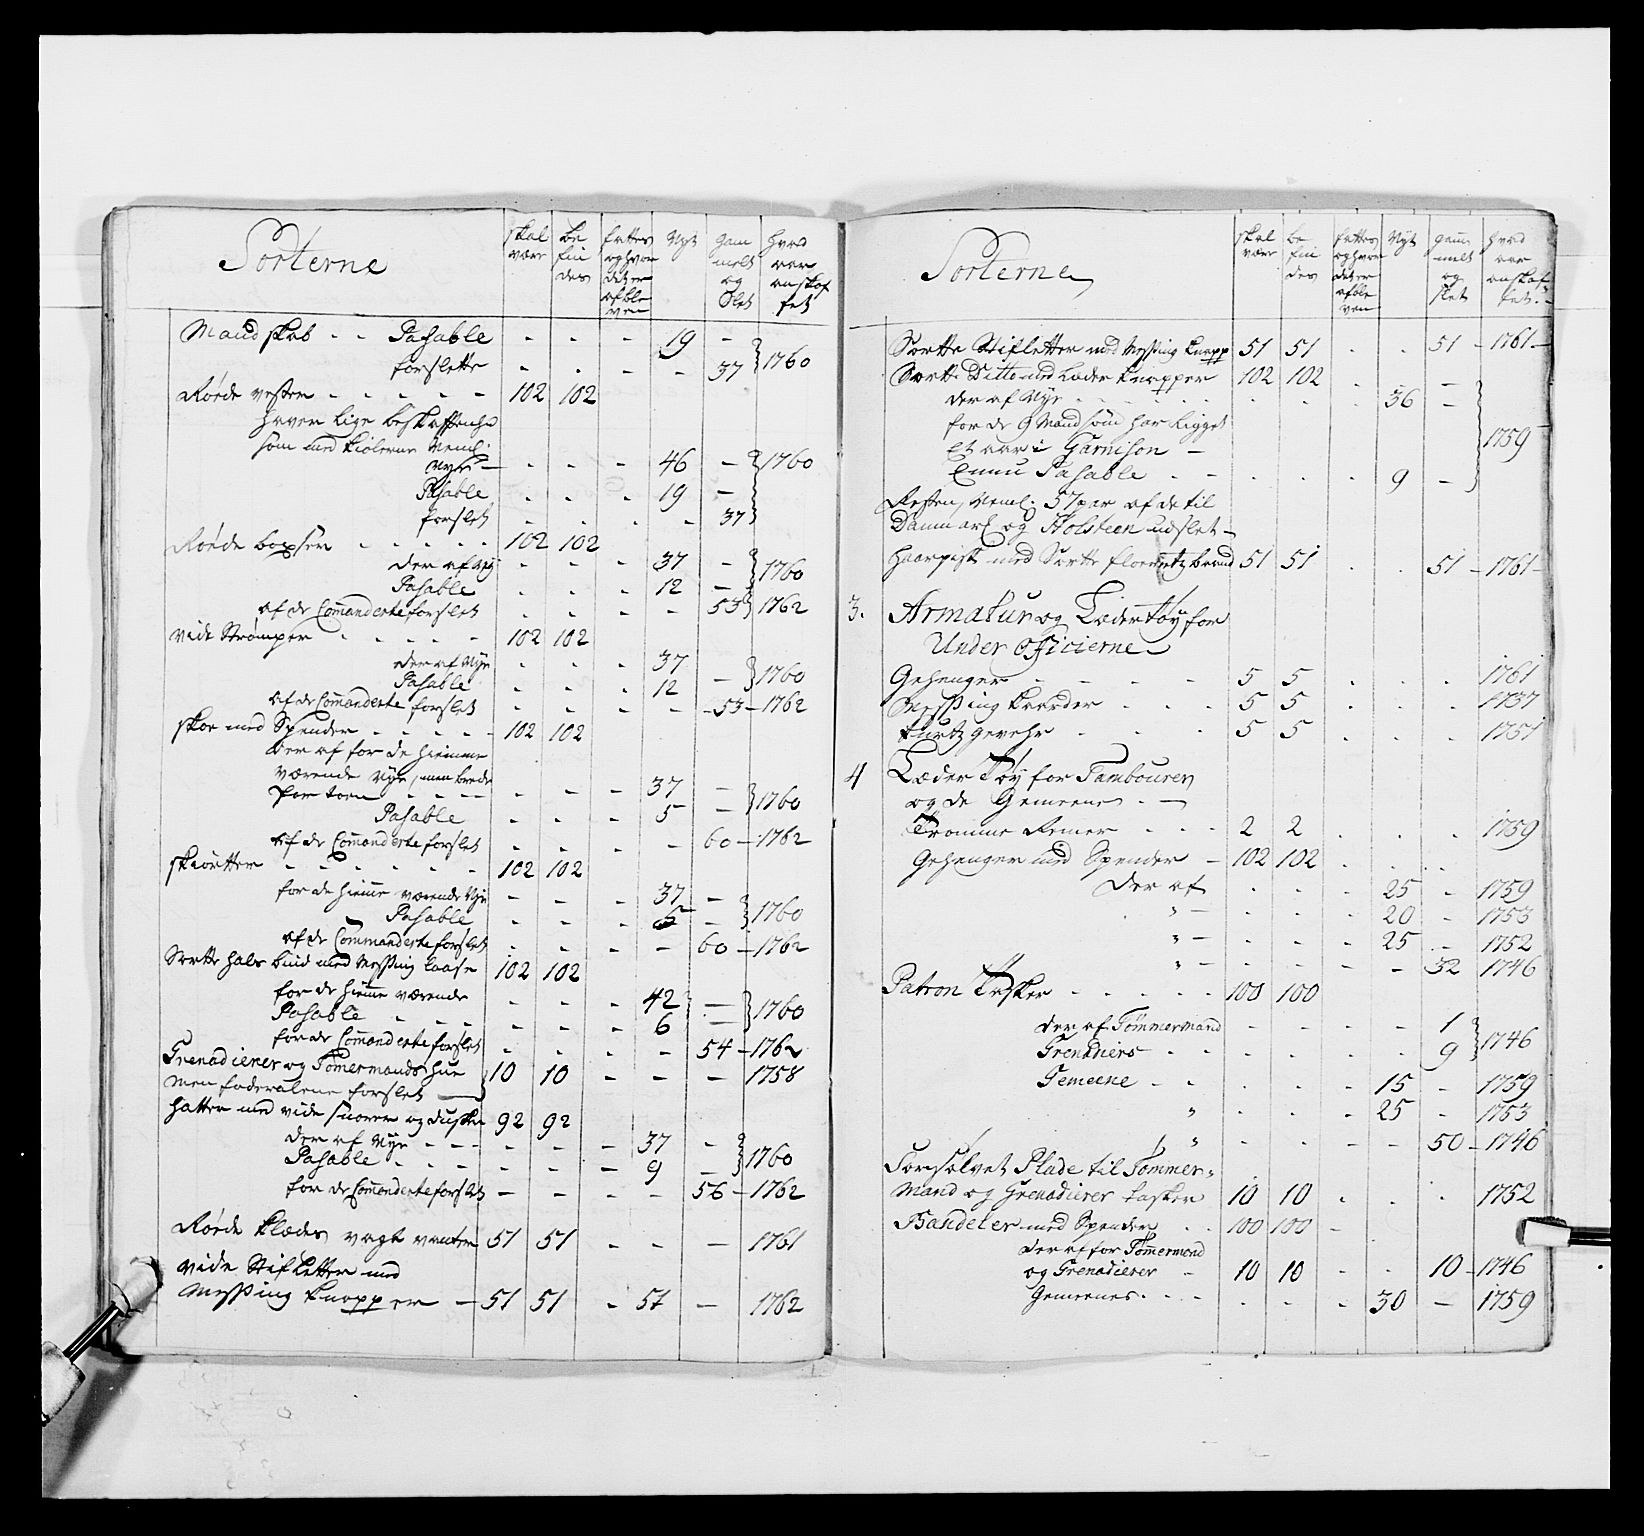 Sorterne
skal være
be fin des
fattes og hvor det er afble ven
Nyt
gam melt og Slet
hvad aar anskaf fet
Mandskab - - Pasable - - - 19 -
forslette - - - - 37 } 1760
Røede vester - - - - - 102 102
haver lige beskaffenhed
som med kiolerne Neml.
Nye - - - - 46 - } 1760
Pasable - - - 19 -
forslet - - - - 37
Røede boxser - - - - - 102 102
der af Ny - - - 37 -
Pasable - - - 12 - } 1760
af de Comanderte forslet - - - - 53 1762
vide Strømper - - - - - 102 102
der af Nye - - - 37
Pasable - - - 12 - } 1760
af de Comanderte forslet - - - - 53 - 1762
skoe med Spender - - - - - 102 102
der af for de hiemme
værende Nye, men brede
for toen - - - - - - - 37 -
Pasable - - - 5 - } 1760
af de Comanderte forslet - - - - 60 - 1762
skiorter - - - - - - 102 102
for de hieme værende Nye - - - 37 -
Pasable - - - 5 - } 1760
af de Commanderte forslet - - - - 60 - 1762
Sorte hals bind med Messing laase 102 102
for de hieme værende - - - 42 -
Pasable - - - - - - 6 - } 1760
for de Comanderte forslet - - - - 54 - 1762
Grenadierer og Tømermands hue 10 10 - - - 1758
men foderalene forslet
hatter med vide snorer og duske 92 92
der af Nye - - - - - - 37 -
Pasable - - - - - - - 9 - } 1760
for de Comanderte forslet - - - - 56 - 1762
Røede klædes vagt vanter 51 51 - - - 1761
vide Stifletter med
Messing knapper - 51 51 - 51 - 1762
Sorterne
skal være
be fin des
fattes og hvor det er afble ven
Nyt
gam melt og slet
hvad aar anskaf fet.
Sorte Stifletter med Messing knapp 51 51 - - 51 - 1761 -
Sorte Ditto med Læder knapper 102 102 - -
der af Nye - - - - - - - - 36 -
for de 9 Mand som har ligget
Et aar i Garnison -
Ennu Pasable - - - - - 9 - } 1759
Resten, Neml. 57 par af de til
Danmark og Holsteen udslet -
haarpisk med Sorte floretz baand 51 51 - - 51 - 1761 -
3. Armatur og Lædertøy for
Under Officierne
Gehenger - - - - 5 5 - - - 1761
Messing kaarder - - - 5 5 - - - 1737
kurtz gevehr - - - 5 5 - - - 1751
4 Læder Tøy for Tambouren
og de Gemeene - -
Tromme Remer - - - 2 2 - - - 1759
Gehenger med Spender - 102 102 - - -
Der af - - - 25 - 1759
" - - - - 20 - 1753
" - - - - 25 - 1752
" - - - - - 32 1746
Patron Tasker - - - - - 100 100
der af Tømmermand - - - - 1
Grenadiers - - - - - - - 9 } 1746
Gemeene - - - - - - 15 - 1759
" - - - 25 - 1753
" - - - - 50 - 1746
Forsølvet Plade til Tømmer-
Mand og Grenadierer tasker 10 10 - - - 1752
Bandeler med Spender - - 100 100 -
der af for Tømermand
og Grenadierer - 10 10 - - 10 - 1746
Gemeenes - - - - - - 30 - 1759